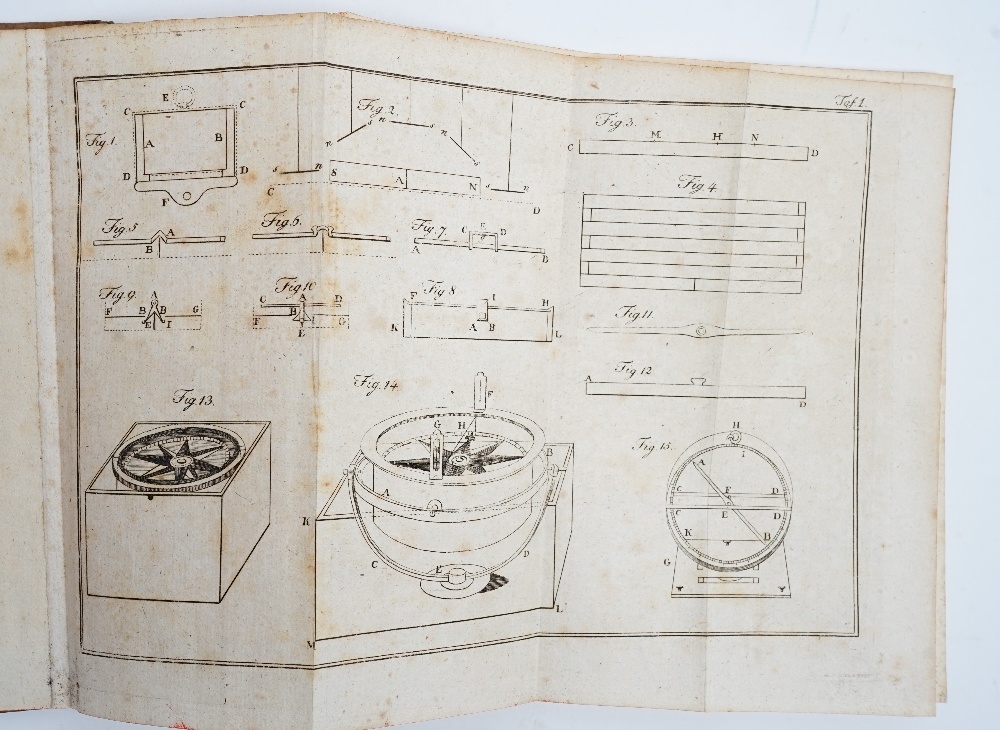 Taf. 1.
Fig. 1.
E
C C
A B
D D
F
Fig. 2.
s n
s n
n s
s n
S A N
C D
s n
Fig. 3.
M H N
C D
Fig. 4
Fig. 5
A
B
Fig. 6.
Fig. 7
C E D
A B
Fig. 8
F I H
K A B L
Fig. 9.
A
F B B G
E I
Fig. 10
C A D
B
F G
E
Fig. 11.
Fig. 12
A
D
Fig. 13.
Fig. 14.
F
G H
B
A
K
D
C E
L
M
Fig. 15.
H
I
A
F
C D
C E D
K B
G